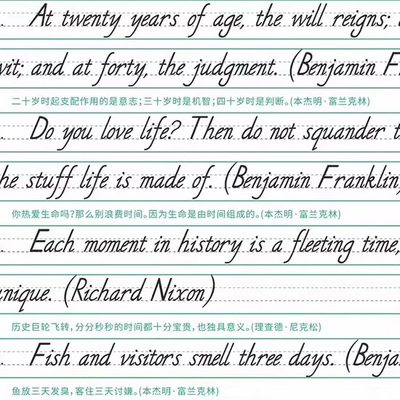 . At twenty years of age, the will reigns;
wit; and at forty, the judgment. (Benjamin
二十岁时起支配作用的是意志;三十岁时是机智;四十岁时是判断。(本杰明·富兰克林)
. Do you love life? Then do not squander
the stuff life is made of. (Benjamin Franklin)
你热爱生命吗?那么别浪费时间。因为生命是由时间组成的。(本杰明·富兰克林)
. Each moment in history is a fleeting time,
unique. (Richard Nixon)
历史巨轮飞转,分分秒秒的时间都十分宝贵,也独具意义。(理查德·尼克松)
. Fish and visitors smell three days.
鱼放三天发臭,客住三天讨嫌。(本杰明·富兰克林)